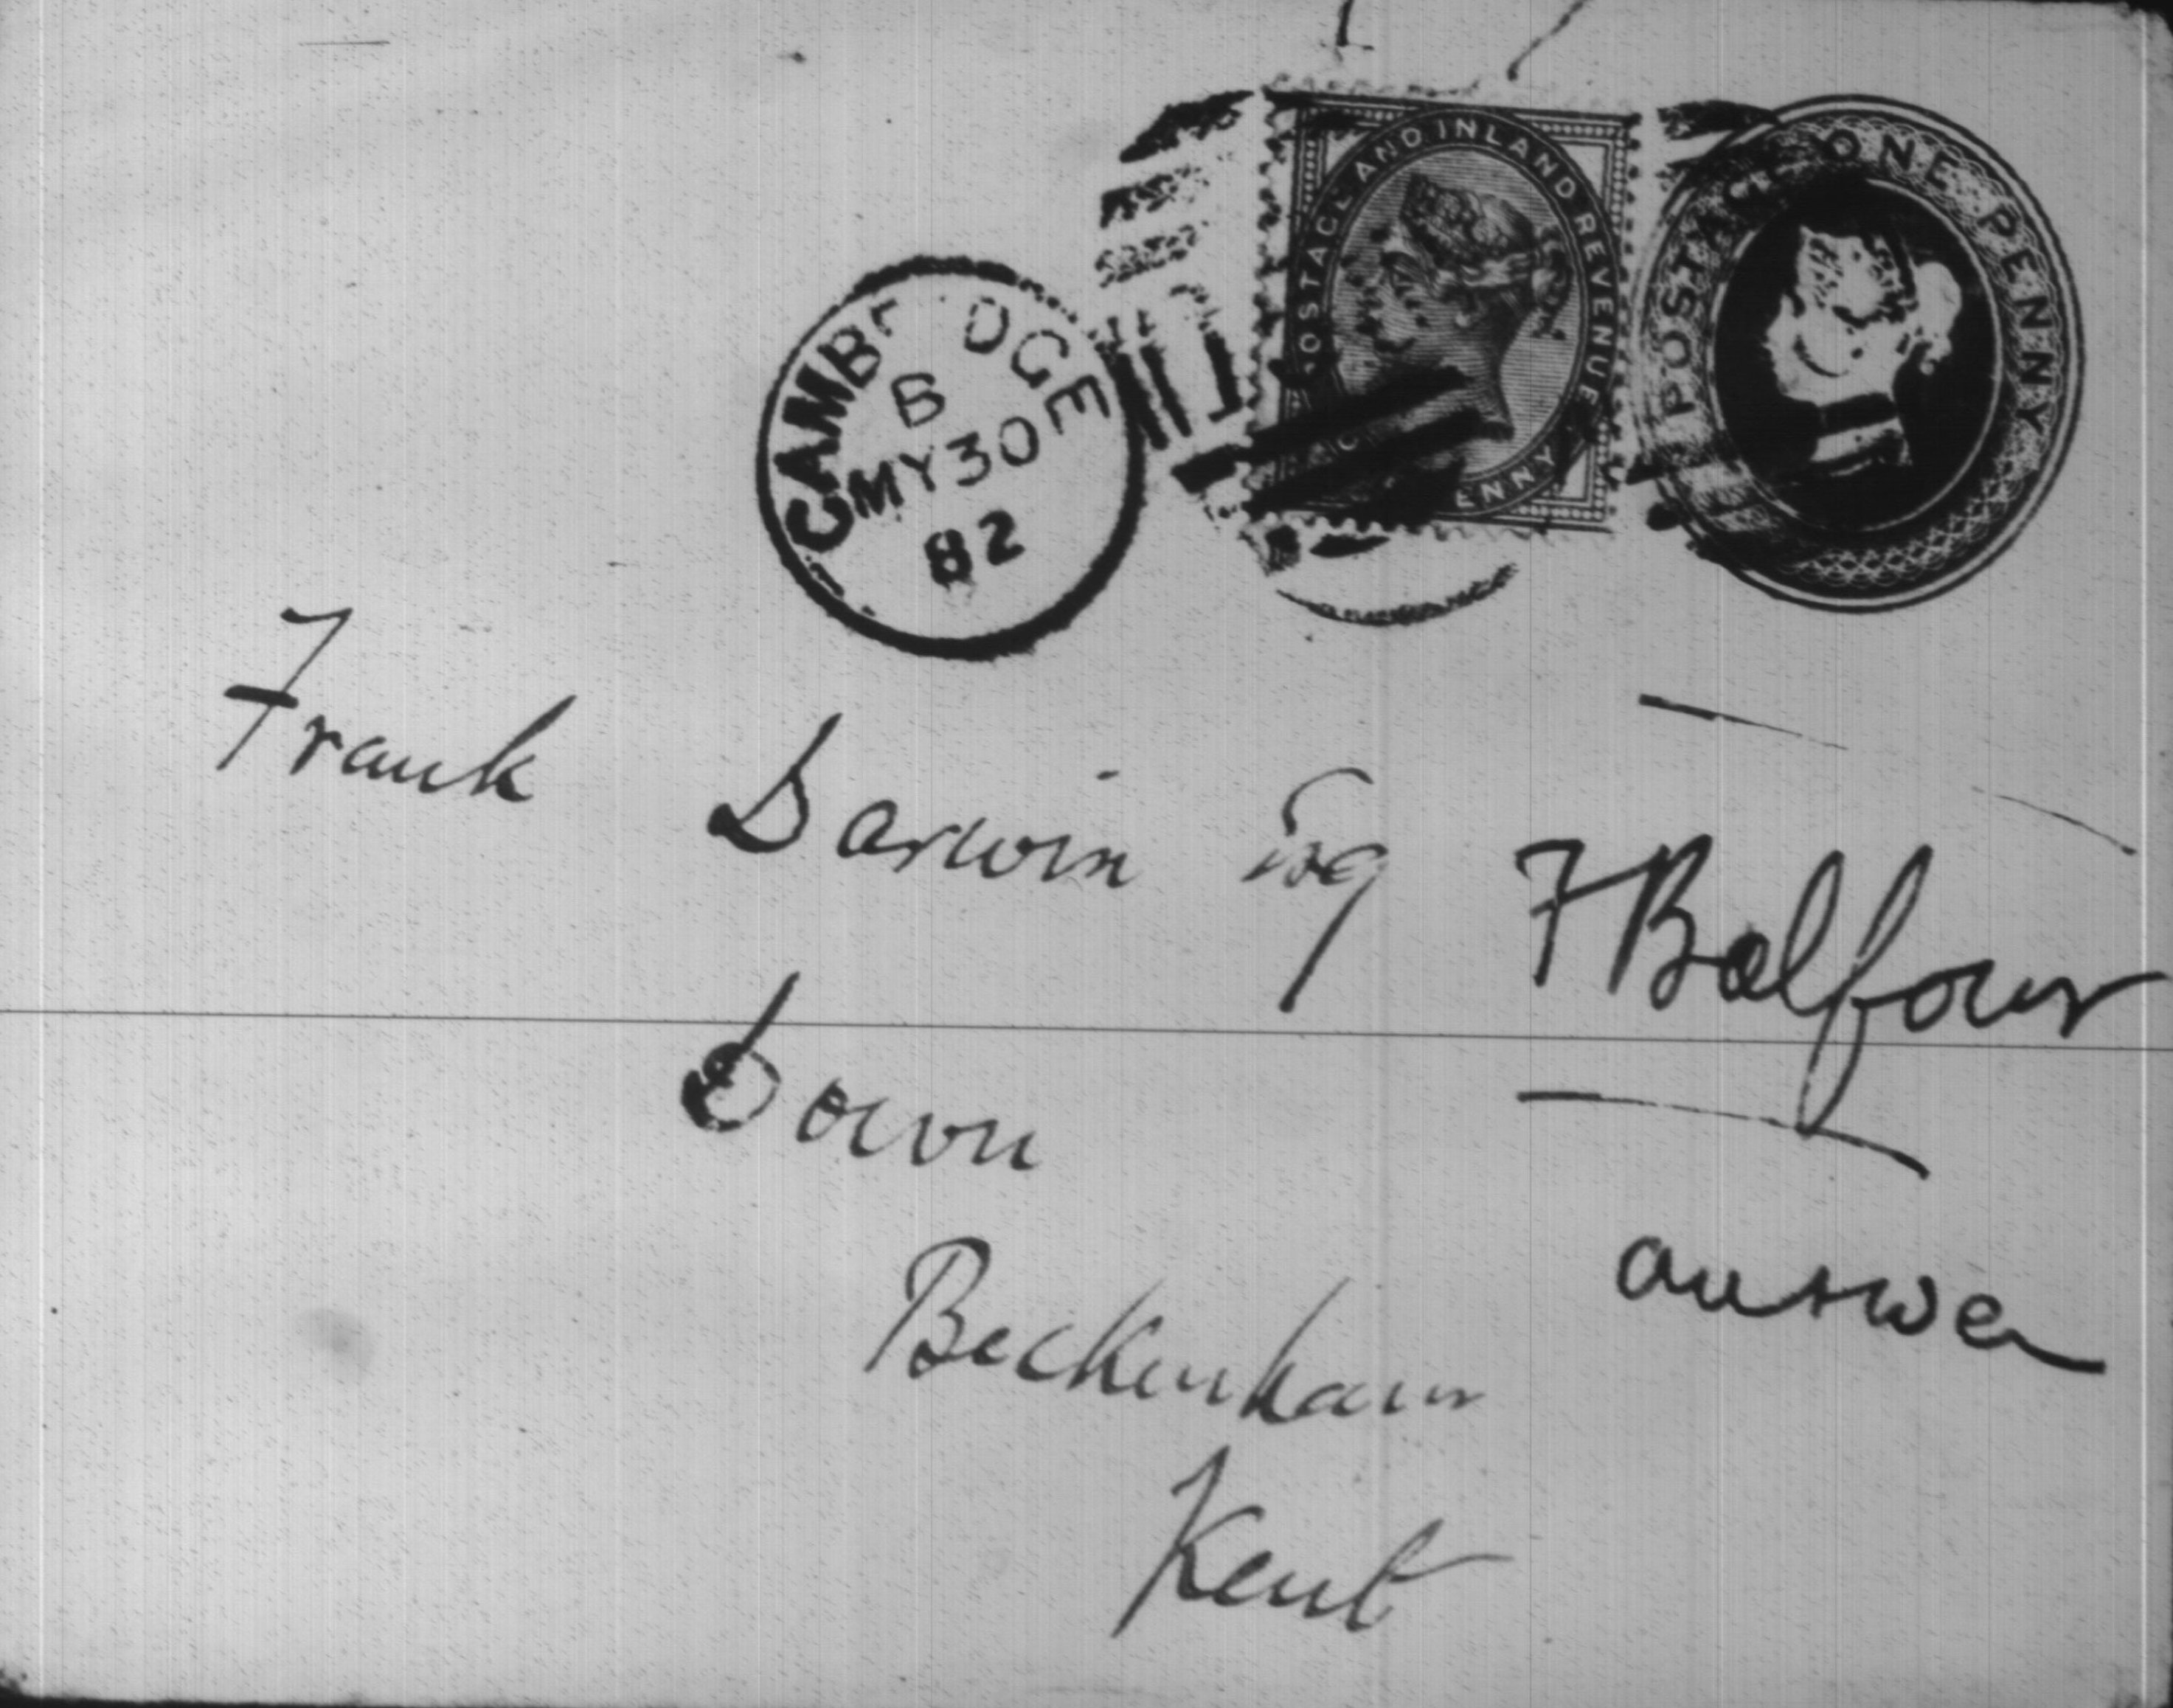 POSTAGE AND INLAND REVENUE
POSTAGE ONE PENNY
CAMB DGE
B
MY 30
82
Frank Darwin Esq
F Balfour
Down
answer
Beckenham
Kent